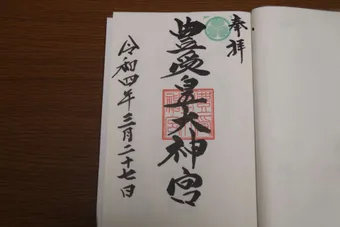 奉拝
豊受皇大神宮
令和四年三月二十七日